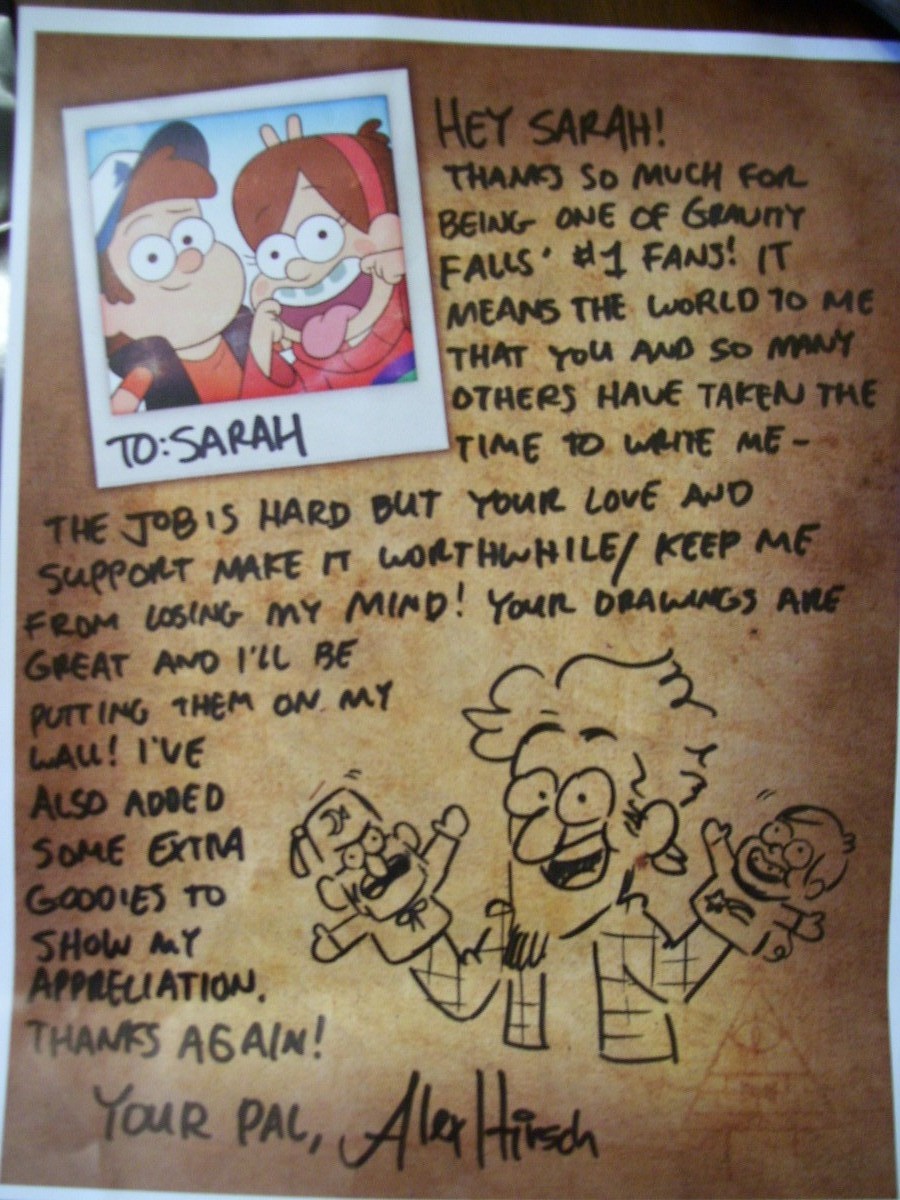 HEY SARAH!
THANKS SO MUCH FOR
BEING ONE OF GRAVITY
FALLS' #1 FANS! IT
MEANS THE WORLD TO ME
THAT YOU AND SO MANY
OTHERS HAVE TAKEN THE
TIME TO WRITE ME -
TO: SARAH
THE JOB IS HARD BUT YOUR LOVE AND
SUPPORT MAKE IT WORTHWHILE/ KEEP ME
FROM LOSING MY MIND! YOUR DRAWINGS ARE
GREAT AND I'LL BE
PUTTING THEM ON MY
WALL! I'VE
ALSO ADDED
SOME EXTRA
GOODIES TO
SHOW MY
APPRECIATION.
THANKS AGAIN!
YOUR PAL, Alex Hirsch